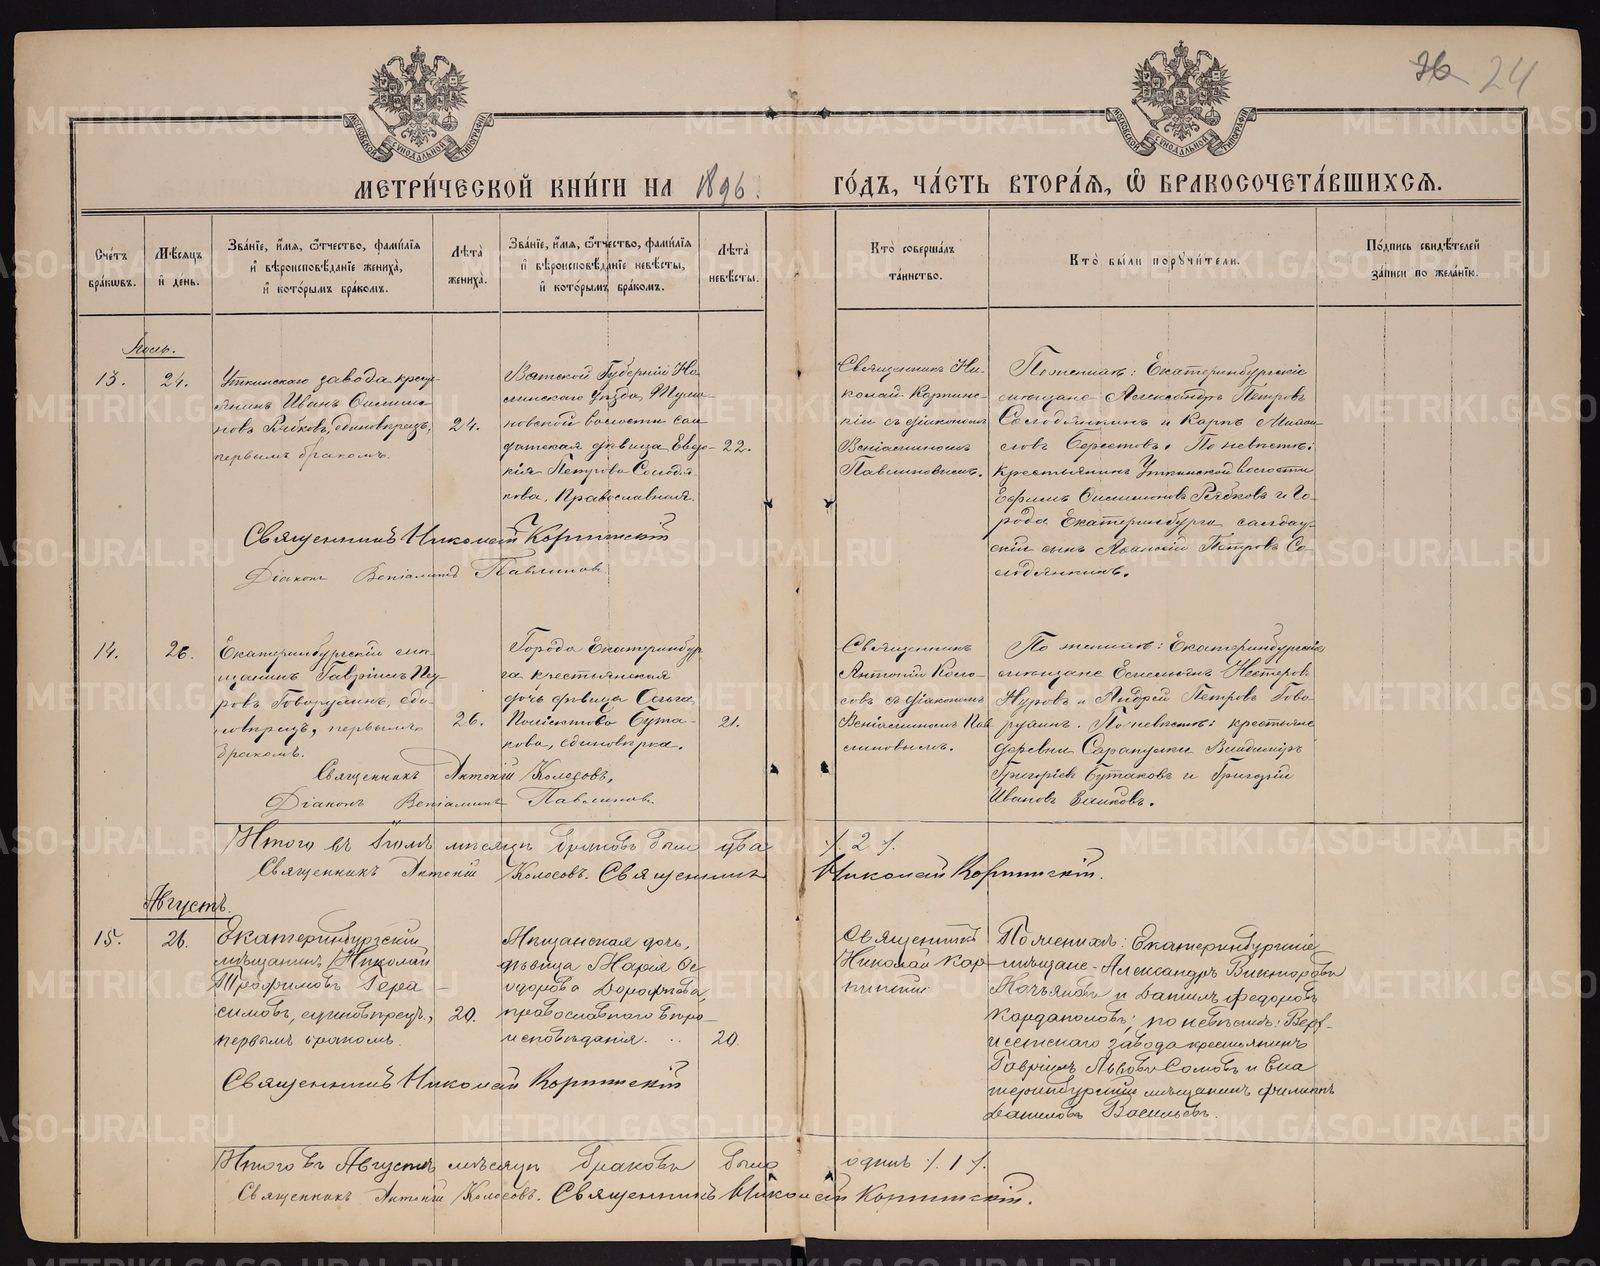 26 24
МОСКОВСКОЙ СУНОДАЛЬНОЙ ТИПОГРАФІИ
МОСКОВСКОЙ СУНОДАЛЬНОЙ ТИПОГРАФІИ
МЕТРИ́ЧЕСКОЙ КНИ́ГИ НА 1896 ГО́ДЪ, ЧА́СТЬ ВТОРА́Я, Ѡ БРАКОСОЧЕТА́ВШИХСЯ.
Сче́тъ бра́кѡвъ.
Мѣ́сяцъ и́ де́нь.
Зва́нїе, и́мя, ѻ҆́тчество, фами́лїя
и҆ вѣроисповѣ́данїе жениха̀,
и҆ кото́рымъ бра́комъ.
Лѣта̀ жениха̀.
Зва́нїе, и́мя, ѻ҆́тчество, фами́лїя
и҆ вѣроисповѣ́данїе невѣ́сты,
и҆ кото́рымъ бра́комъ.
Лѣта̀ невѣ́сты.
Кто̀ соверша́лъ та́инство.
Кто̀ бы́ли порꙋчи́тели.
По́дпись свидѣ́телей
за́писи по жела́нїю.
Іюль.
13.
24.
Уткинскаго завода кресть-
янинъ Иванъ
новъ Рябковъ, единовѣрецъ,
первымъ бракомъ.
24.
Вятской Губерніи Но
линскаго уѣзда,
новской волости сол
датская дѣвица Евдо-
кія Петрова Солодян
кова, Православная
22.
Священникъ Ни-
колай Корпинс-
кій съ діакономъ
Веніаминомъ
Павлиновымъ.
По женихѣ: Екатеринбургскіе
мѣщане Александръ Петровъ
Солодянкинъ и Карпъ
Берестовъ. По невѣстѣ:
крестьянинъ Уткинской волости
Ефимъ Рябковъ и го-
рода Екатеринбурга солдат-
скій сынъ Петровъ Со-
лодянкинъ.
Священникъ Николай Корпинскій
Діаконъ Веніаминъ Павлиновъ
14.
26.
Екатеринбургскій мѣ-
щанинъ Гавріилъ Пет-
ровъ Говорухинъ, еди-
новѣрецъ, первымъ
бракомъ.
26.
Города Екатеринбур
га крестьянская
дочь дѣвица Ольга
Бута-
кова, единовѣрка.
21.
Священникъ
Антоній Коло-
совъ съ діакономъ
Веніаминомъ Пав
линовымъ.
По женихѣ: Екатеринбургскіе
мѣщане Нестеровъ
Нуровъ и Андрей Петровъ Гово
рухинъ. По невѣстѣ: крестьяне
деревни Сарапулки Владиміръ
Григорьевъ Бутаковъ и Григорій
Ивановъ Зыковъ.
Священникъ Антоній Колосовъ,
Діаконъ Веніаминъ Павлиновъ.
Итого въ Іюлѣ мѣсяцѣ браковъ было два /. 2 /.
Священникъ Антоній Колосовъ. Священникъ Николай Корпинскій.
Августъ.
15.
26.
Екатеринбургскій
мѣщанинъ Николай
Трофимовъ Гера-
симовъ, единовѣрецъ,
первымъ бракомъ.
20.
Мѣщанская дочь,
дѣвица Марія Ѳе
одорова Дорофѣева,
православнаго вѣро-
исповѣданія.
20
Священникъ
Николай Кор-
пинскій
По женихѣ: Екатеринбургскіе
мѣщане - Александръ Викторовъ
и Даніилъ Федоровъ
Кардаполовъ; по невѣстѣ: Верх-
исетскаго завода крестьянинъ
Гавріилъ Львовъ Сомовъ и Ека
теринбургскій мѣщанинъ Филиппъ
Даниловъ Васильевъ.
Священникъ Николай Корпинскій
Итого въ Августѣ мѣсяцѣ браковъ было одинъ /. 1 /.
Священникъ Антоній Колосовъ. Священникъ Николай Корпинскій.
METRIKI.GASO-URAL.RU